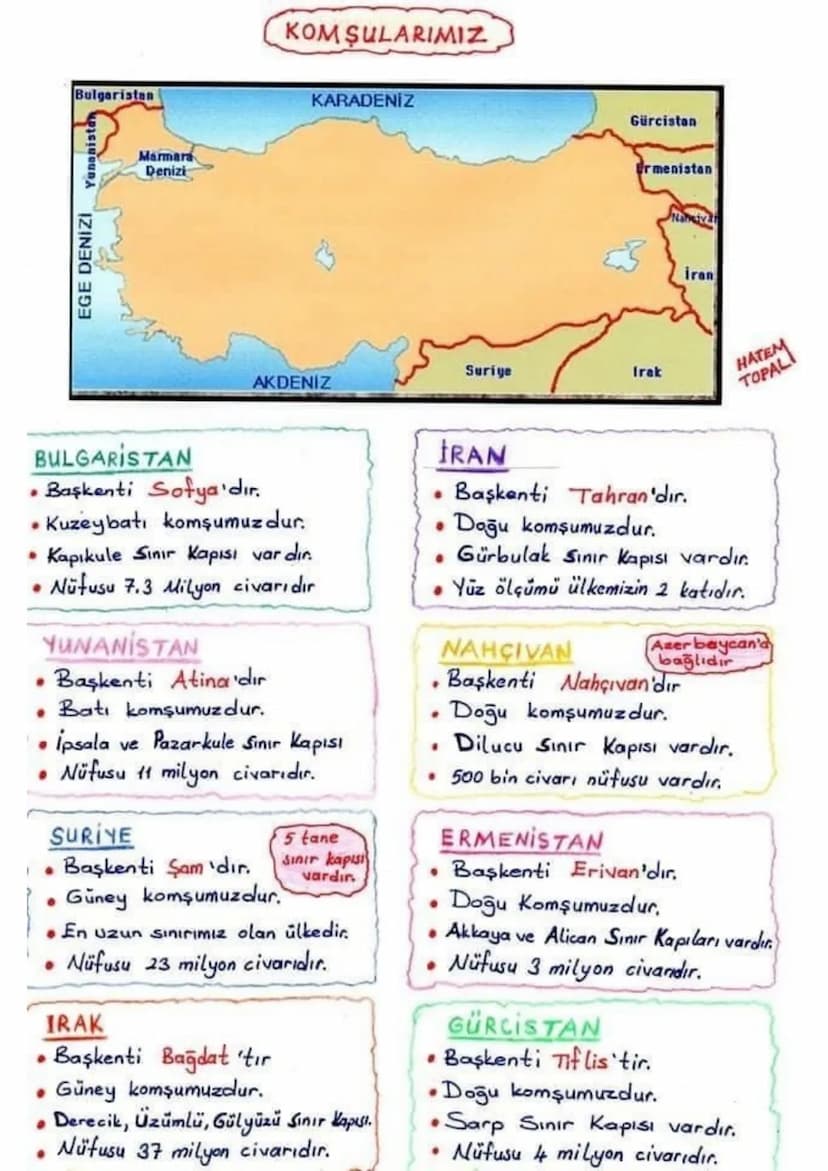 KOMŞULARIMIZ
Bulgaristan
KARADENİZ
Gürcistan
Yunanistan
Marmara
Denizi
Ermenistan
Nahçıvan
EGE DENİZİ
İran
AKDENİZ
Suriye
Irak
HATEM
TOPAL
BULGARİSTAN
• Başkenti Sofya'dır.
• Kuzeybatı komşumuzdur.
• Kapıkule Sınır Kapısı vardır.
• Nüfusu 7.3 Milyon civarıdır
YUNANİSTAN
• Başkenti Atina'dır
• Batı komşumuzdur.
• İpsala ve Pazarkule Sınır Kapısı
• Nüfusu 11 milyon civarıdır.
SURİYE
5 tane
sınır kapısı
vardır.
• Başkenti Şam'dır.
• Güney komşumuzdur.
• En uzun sınırımız olan ülkedir.
• Nüfusu 23 milyon civarıdır.
IRAK
• Başkenti Bağdat'tır
• Güney komşumuzdur.
• Derecik, Üzümlü, Gülyüzü Sınır Kapısı.
• Nüfusu 37 milyon civarıdır.
İRAN
• Başkenti Tahran'dır.
• Doğu komşumuzdur.
• Gürbulak Sınır Kapısı vardır.
• Yüz ölçümü ülkemizin 2 katıdır.
NAHÇIVAN
Azerbaycan'a
bağlıdır
• Başkenti Nahçıvan'dır
• Doğu komşumuzdur.
• Dilucu Sınır Kapısı vardır.
• 500 bin civarı nüfusu vardır.
ERMENİSTAN
• Başkenti Erivan'dır.
• Doğu Komşumuzdur.
• Akkaya ve Alican Sınır Kapıları vardır.
• Nüfusu 3 milyon civarıdır.
GÜRCİSTAN
• Başkenti Tiflis'tir.
• Doğu komşumuzdur.
• Sarp Sınır Kapısı vardır.
• Nüfusu 4 milyon civarıdır.